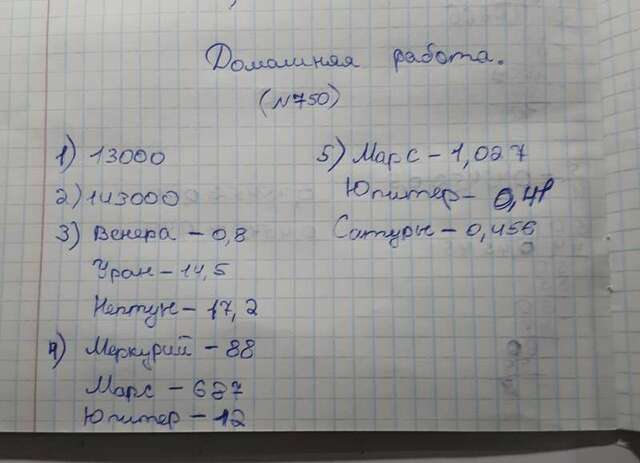 Домашняя работа.
(№750)
1) 13000
2) 143000
3) Венера – 0,8
Уран – 14,5
Нептун – 17,2
4) Меркурий – 88
Марс – 687
Юпитер – 12
5) Марс – 1,027
Юпитер – 0,41
Сатурн – 0,456